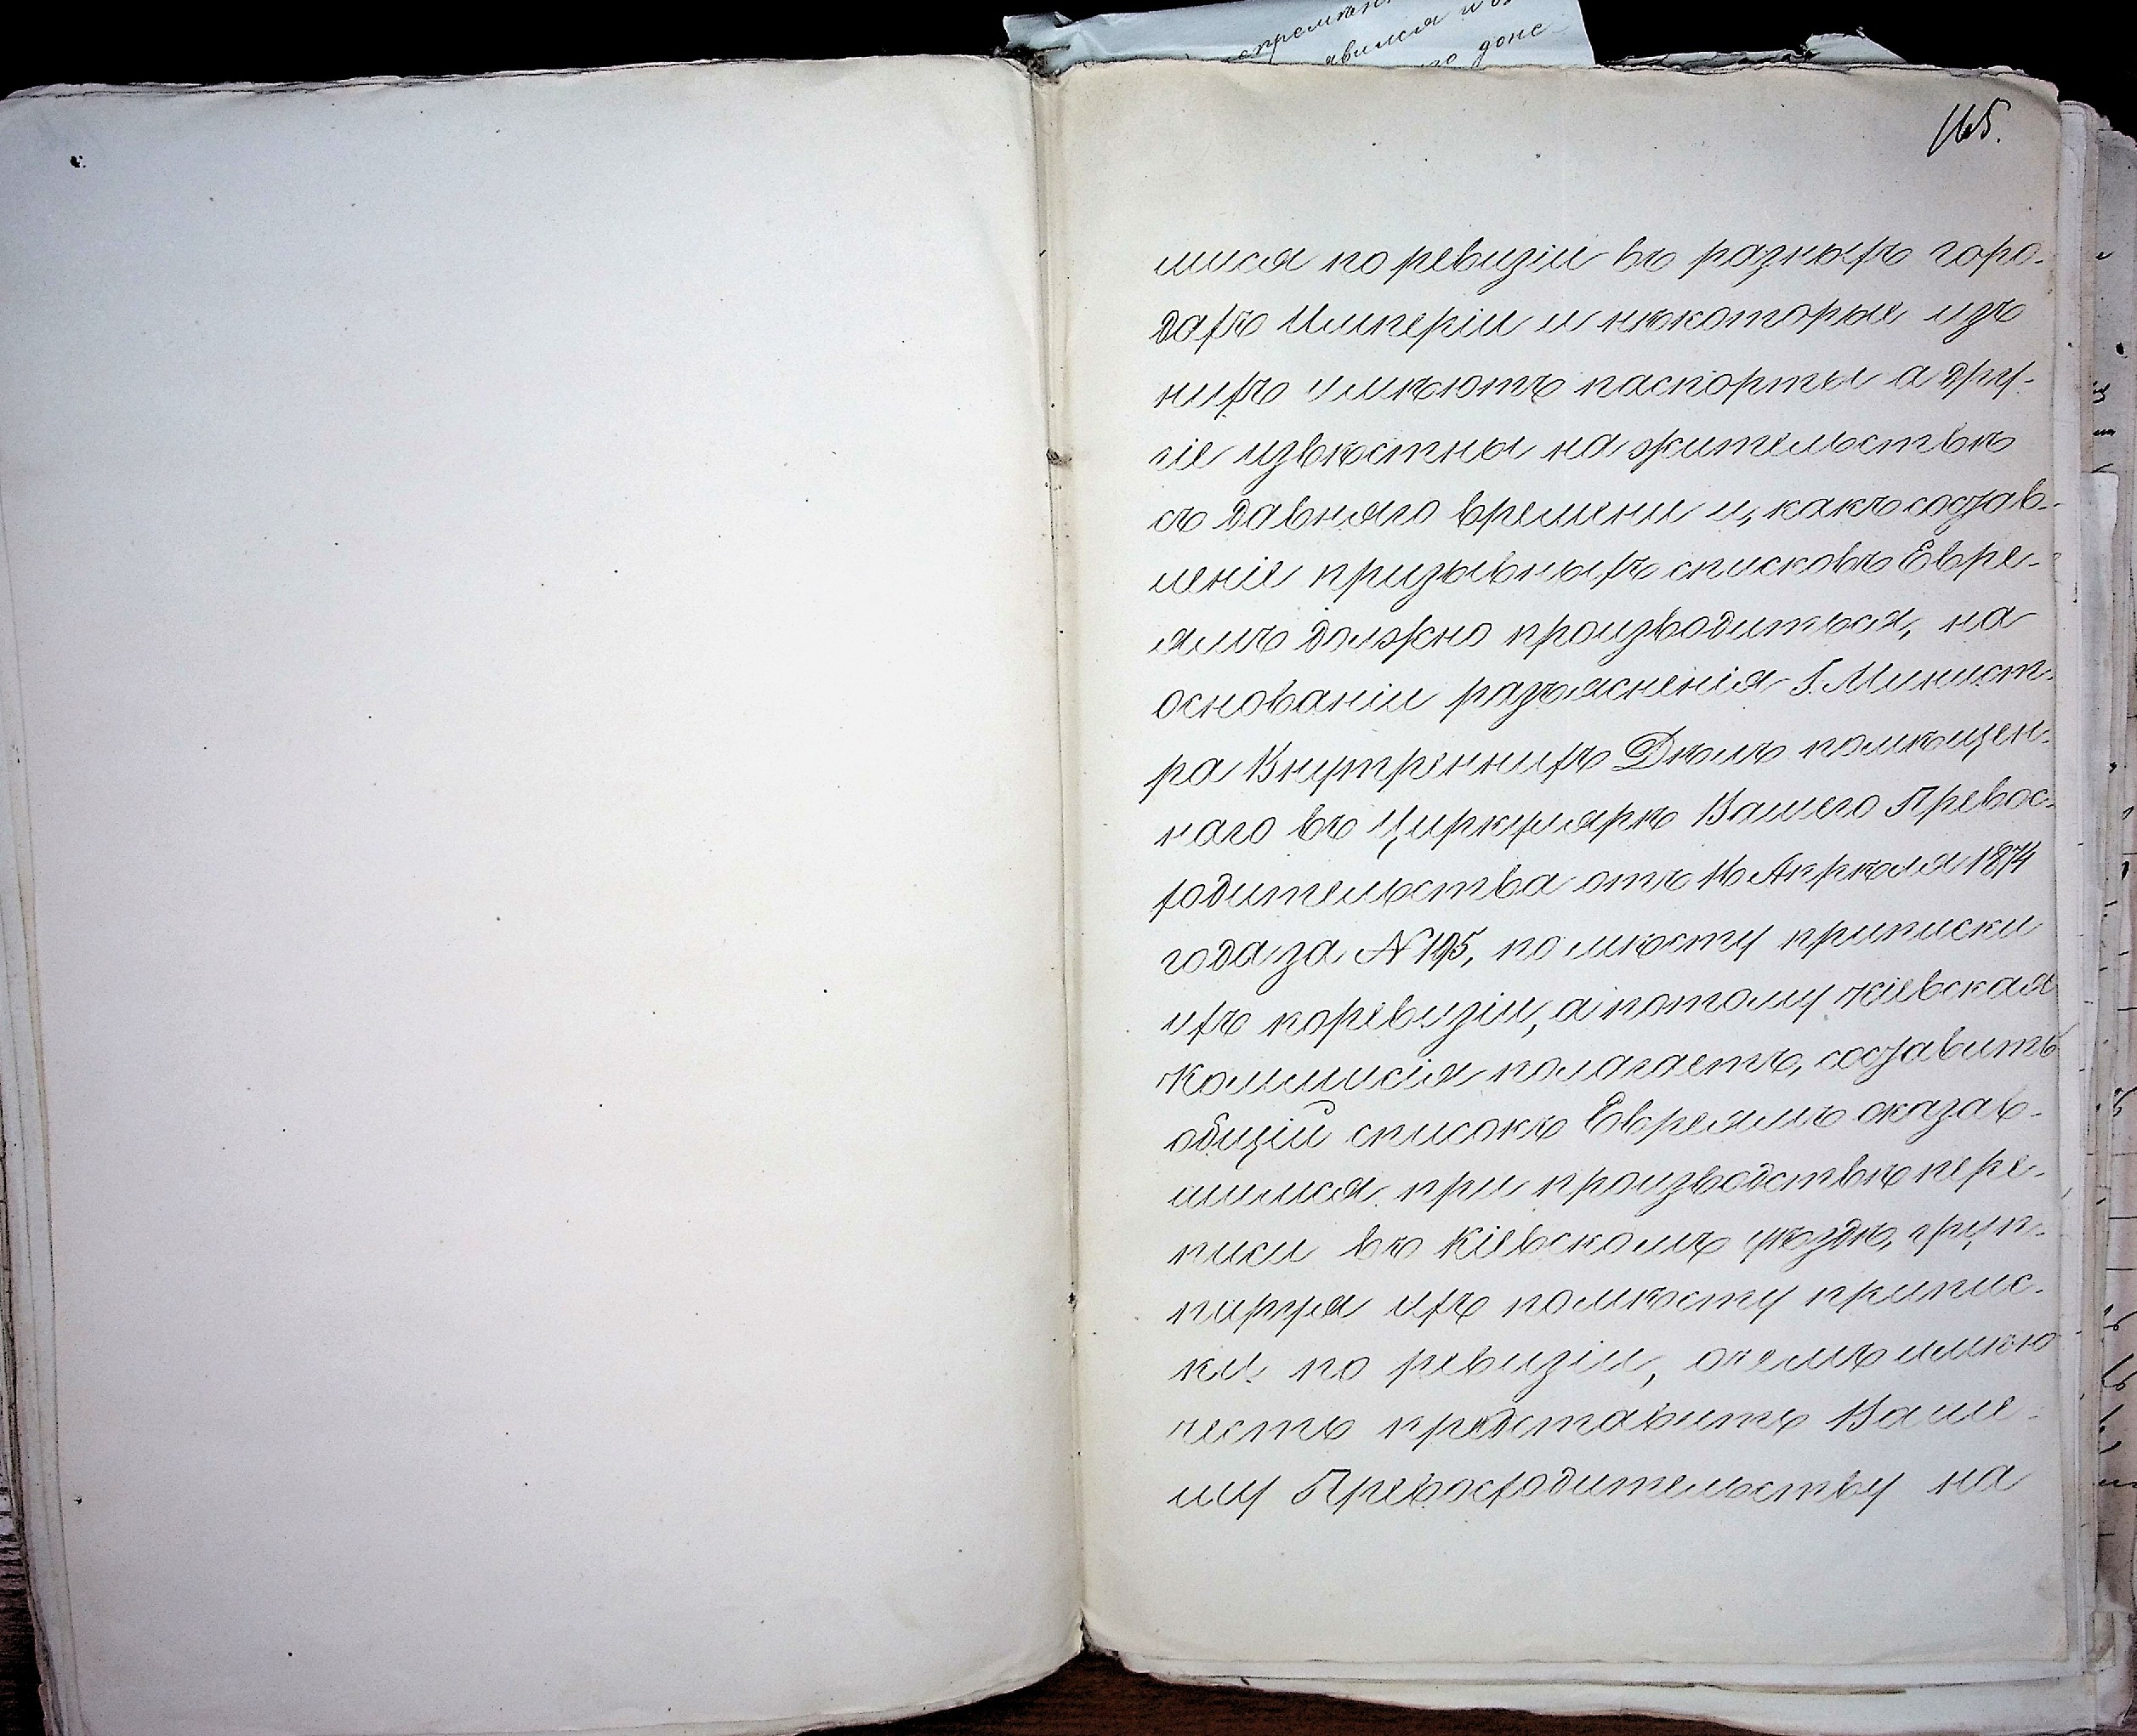 165.
лися по ревизіи въ разныхъ горо-
дахъ Имперіи и нѣкоторые изъ
нихъ имѣютъ паспорты а дру-
гіе извѣстны на жительствѣ
съ давняго времени и, какъ состав-
леніе призывныхъ списковъ Евре-
ямъ должно производиться, на
основаніи разъясненія Г. Минист-
ра Внутреннихъ Дѣлъ помѣщен-
наго въ Циркулярѣ Вашего Превос-
ходительства отъ 16 Апрѣля 1874
года за N 195, по мѣсту приписки
ихъ по ревизіи, а потому Кіевская
Коммисія полагаетъ, составить
общій списокъ Евреямъ оказав-
шимся при производствѣ пере-
писи въ Кіевскомъ уѣздѣ, груп-
пируя ихъ по мѣсту припис-
ки по ревизіи, о чемъ имѣю
честь представить Ваше-
му Превосходительству на